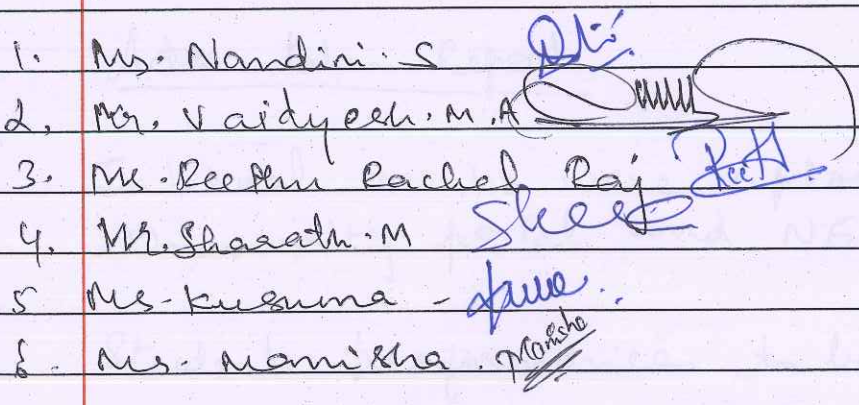 1. Ms. Nandini. S
2. Mr. Vaidyesh. M. A
3. Ms. Reethu Rachel Raj Reeth
4. Mr. Sharath. M
5 Ms. Kusuma -
6. Ms. Manisha. Manisha